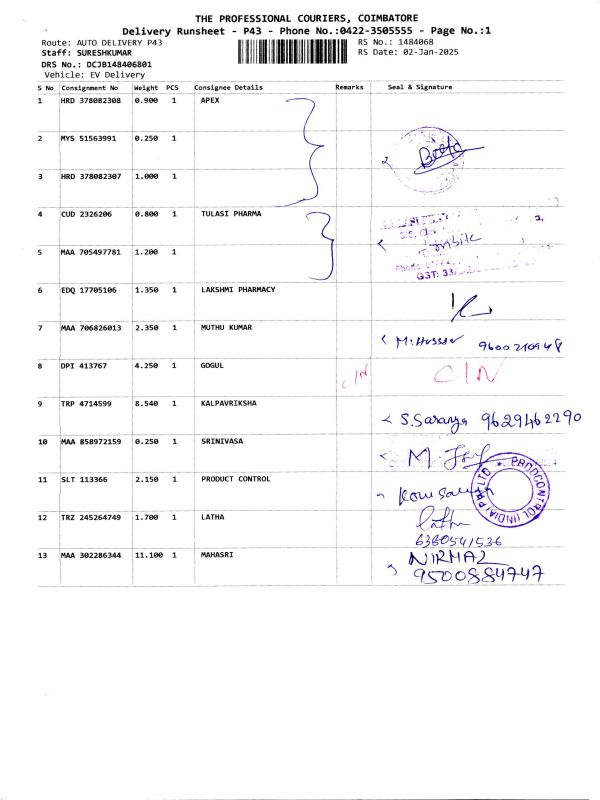 THE PROFESSIONAL COURIERS, COIMBATORE
Delivery Runsheet - P43 - Phone No.:0422-3505555 - Page No.:1
Route: AUTO DELIVERY P43 RS No.: 1484068
Staff: SURESHKUMAR RS Date: 02-Jan-2025
DRS No.: DCJB148406801
Vehicle: EV Delivery
S No Consignment No Weight PCS Consignee Details Remarks Seal & Signature
1 HRD 378082308 0.900 1 APEX
2 MYS 51563991 0.250 1
3 HRD 378082307 1.000 1
4 CUD 2326206 0.800 1 TULASI PHARMA
5 MAA 705497781 1.200 1
GST: 33
6 EDQ 17705106 1.350 1 LAKSHMI PHARMACY
7 MAA 706826013 2.350 1 MUTHU KUMAR M. Hussar 9600210948
8 DPI 413767 4.250 1 GOGUL C/N C/N
9 TRP 4714599 8.540 1 KALPAVRIKSHA S. Saranya 9629462290
10 MAA 858972159 0.250 1 SRINIVASA M.
11 SLT 113366 2.150 1 PRODUCT CONTROL PRODCONTROL (INDIA) PVT LTD
12 TRZ 245264749 1.700 1 LATHA Latha
6380541536
13 MAA 302286344 11.100 1 MAHASRI NIRMAL
9500884747